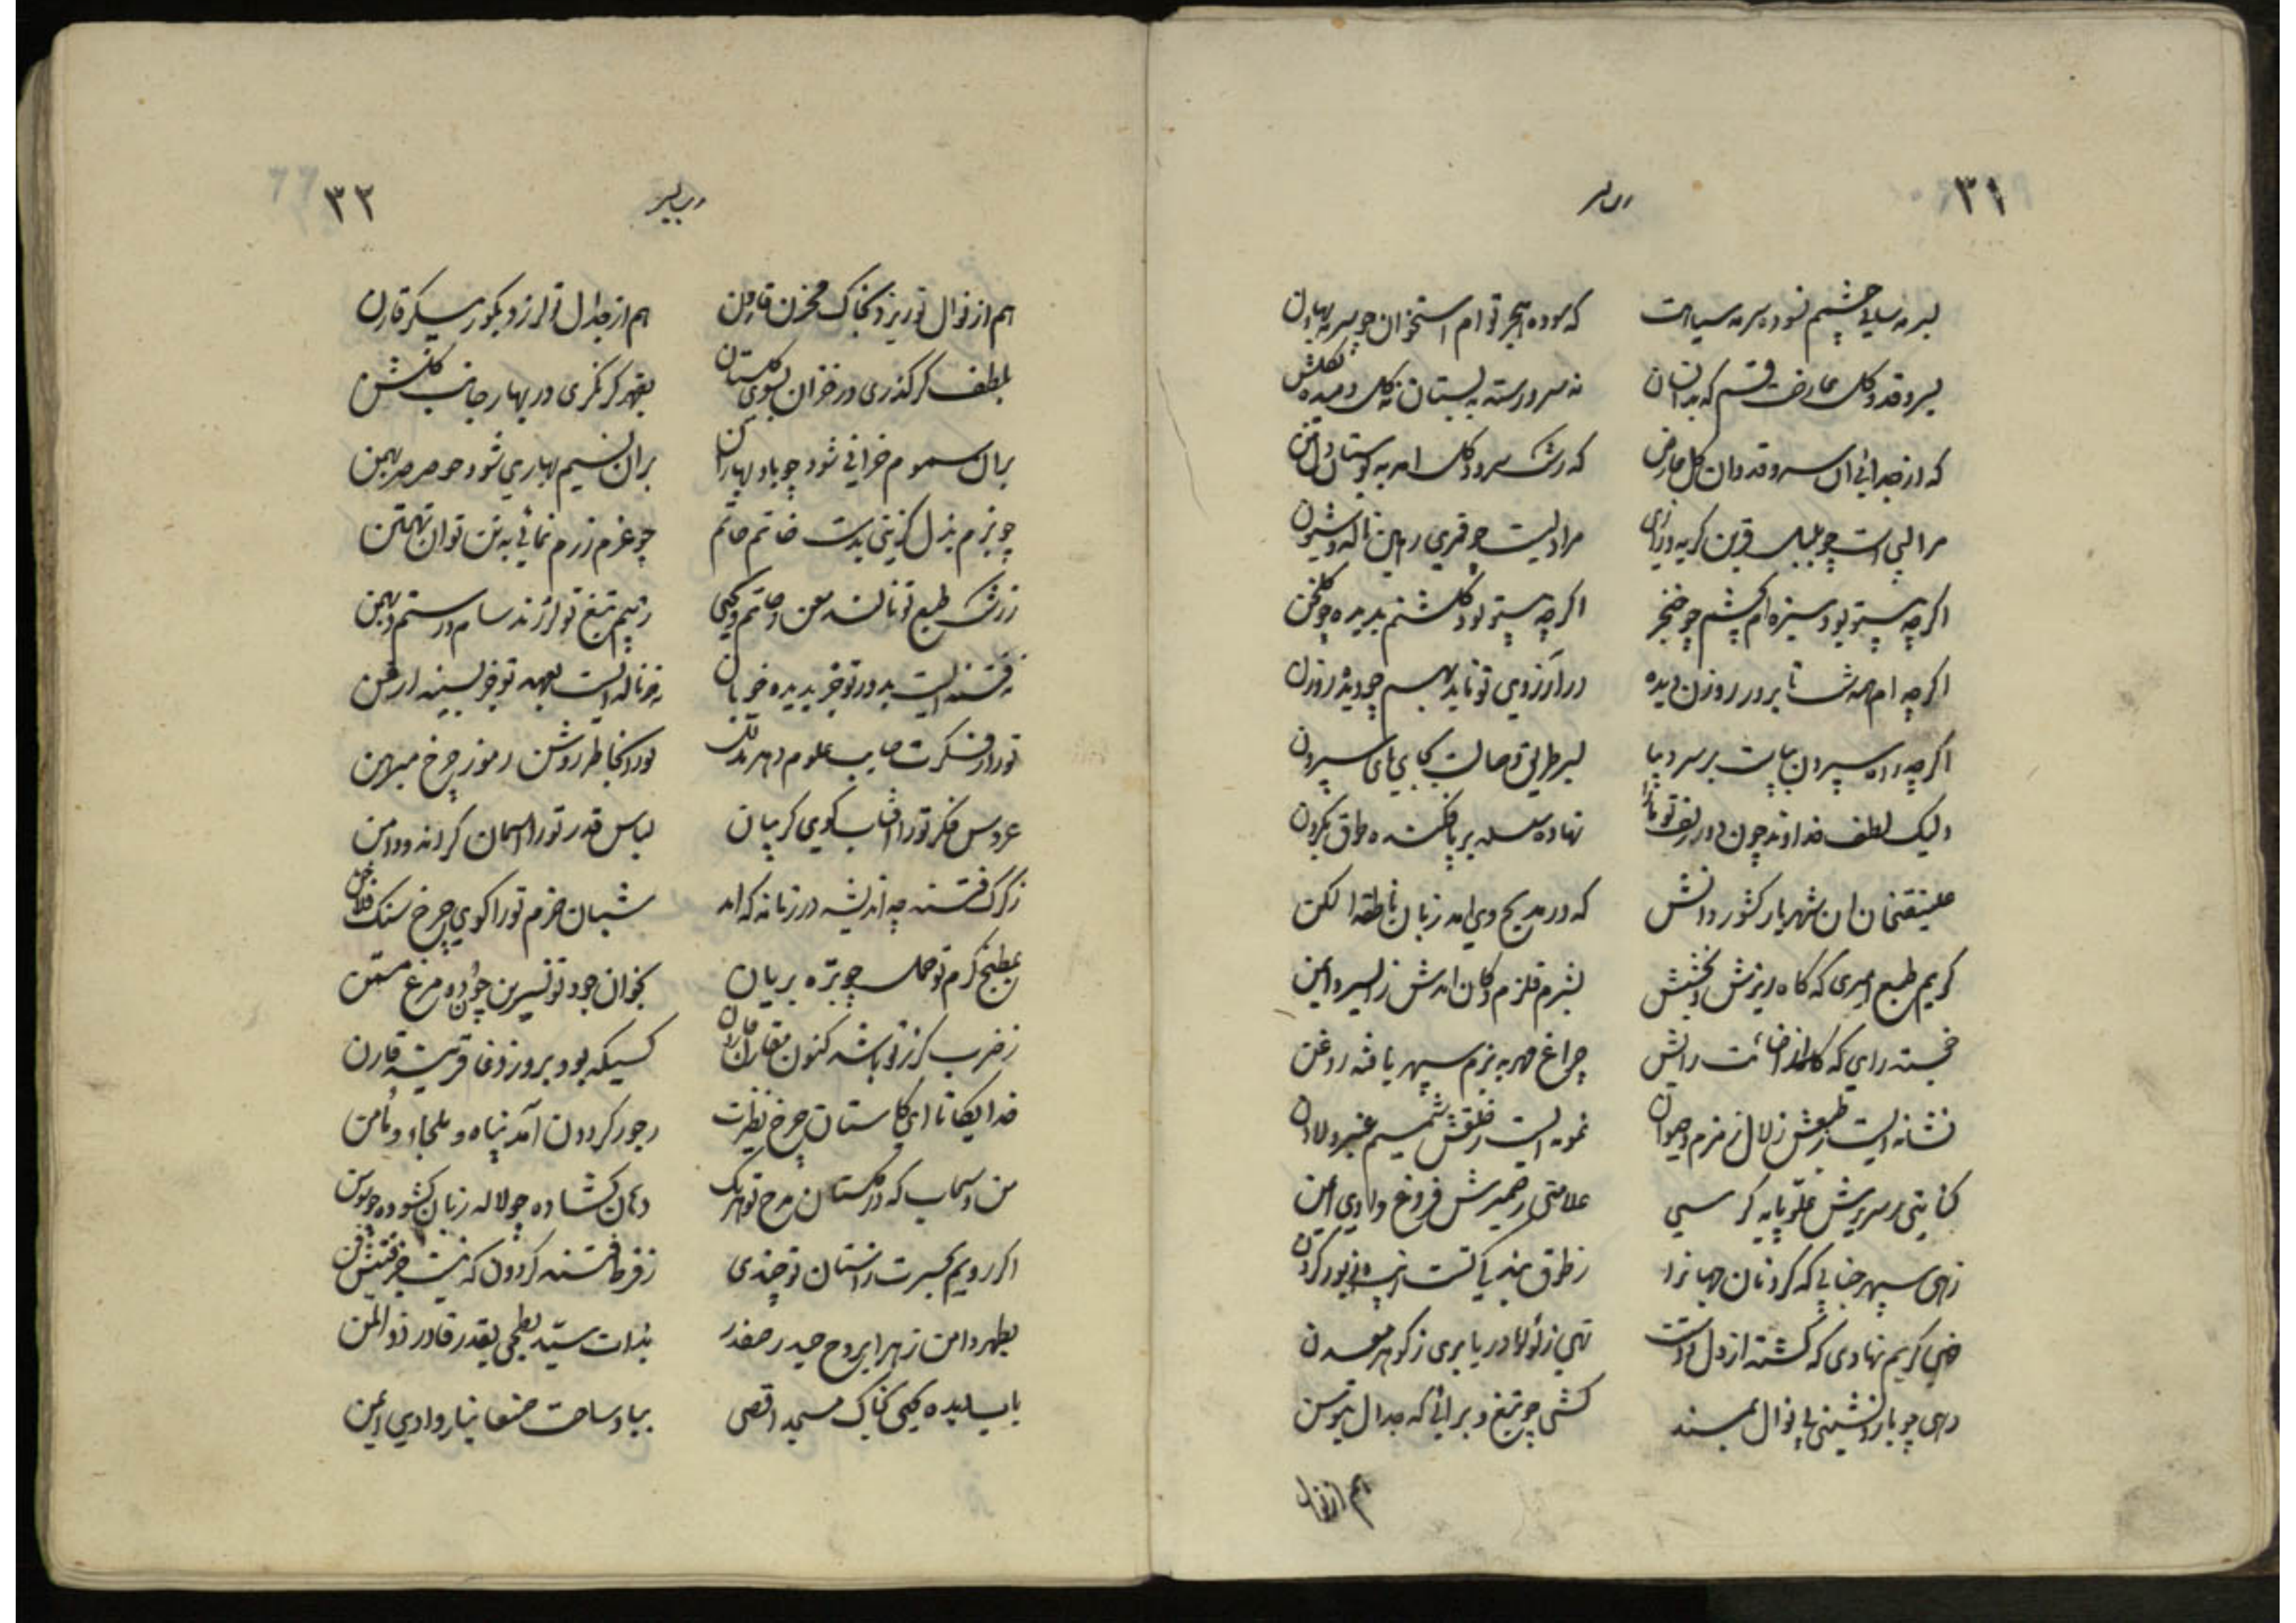 ۳۱
بسرمه سای چشم تو و بسرمه سیاهت که سوده هجر توام استخوان چو سرمه بهاون
بسرو قد و گل عارضت قسم که بدانسان نه سرو رسته به بستان نه گل دمیده بگلشن
که از جدائی ان سرو قد وان گل عارض که رشک سرو و گل امد به بوستان و
مرا لبی است چو بلبل قرین گریه و زاری مرا دلیست چو قمری رهین ناله و شیون
اگرچه بیتو بود سبزه ام بچشم چو خنجر اگرچه بیتو بود گلشنم بدیده چو گلخن
اگرچه ام همه شب تا بروز روزن دیده در آرزوی تو ناید بهم چو دیده روزن
اگرچه راه سپردن بپایت بر سر و پا بسر طریق وصالت بجای پای سپردن
ولیک لطف خداوند چون دو زلف تو نهاده سلسله بر پا فکنده طوق بگردن
علینقیخان ان شهریار کشور دانش که در مدیح وی امد زبان ناطقه الکن
کریم طبع امیری که گاه ریزش و بخشش بشرم قلزم و کان امدش ز ایسر و ایمن
خجسته رایی که از رایش چراغ مهر به بزم سپهر یافته روغن
نشانه ایست ز طبعش زلال زمزم و حیوان نمونه ایست ز خلقش شمیم عنبر و لادن
کنایتی ز سریرش علو پایه کرسی علامتی ز ضمیرش فروغ وادی ایمن
زهی سپهر جنابی که گردنان جهانرا ز طوق بندگیت زیور گردن
خهی کریم نهادی که گشته از دل و دستت تهی ز لؤلؤ دریا بری ز گوهر معدن
دهی چو باده نشینی پی نوال بمسند کشی چو تیغ و برائی گه جدال بتوسن
هم از نوال
۳۲
هم از نوال تو ریزد بخاک مخزن قارون هم از جدال تو لرزد بگور پیکر قارن
بلطف گر گذری در خزان بسوی گلستان بقهر گر نگری در بهار جانب گلشن
بر ان سموم خزانی شود چو باد بهاران بر ان نسیم بهاری شود چو صرصر بهمن
چو بزم بذل گزینی بدست خاتم حاتم چو عزم رزم نمائی به تن توان تهمتن
ز رشک طبع تو نالند معن و حاتم و یحیی ز بیم تیغ تو لرزند سام و رستم و بهمن
نه فتنه ایست بدور تو جز بدیده خوبان نه ناله ایست بعهد تو جز بسینه ارغن
تو را ز فکرت صایب علوم دهر تو را بخاطر روشن رموز چرخ مبرهن
عروس فکر تو را افتاب گوی گریبان لباس قدر تو را اسمان کرانه دامن
ز گرگ فتنه چه اندیشه در زمانه که امد شبان حزم تو را گوی چرخ سنگ فلاخن
بمطبخ کرم تو حمل چو بره بریان بخوان جود تو نسرین چو ده مرغ مسمن
ز ضرب گرز تو باشد کنون مقارن قارون کسیکه بود بروز وغا قرینه قارن
خدایگانا ای کاستان چرخ نظیرت ز جور گردون آمد پناه و ملجاء و مأمن
من و سحاب که در گلستان مدح تو هر یک دهان گشاده چو لاله زبان گشوده چو سوسن
اگر رویم بحسرت ز استان تو چندی ز فرط فتنه گردون که نیست جز فتنش فن
بطهر دامن زهرا بروح حیدر صفدر بذات سید بطحی بقدر قادر ذوالمن
بباب سده یحیی بخاک مسجد اقصی بباد ساحت صنعا بنار وادی ایمن